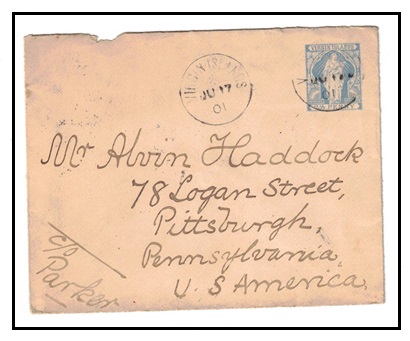 VIRGIN ISLANDS
VIRGIN ISLANDS
JU 17
01
JU 17
01
Mr Alvin Haddock
78 Logan Street,
Pittsburgh,
Pennsylvania
U.S America
c/o
Parker